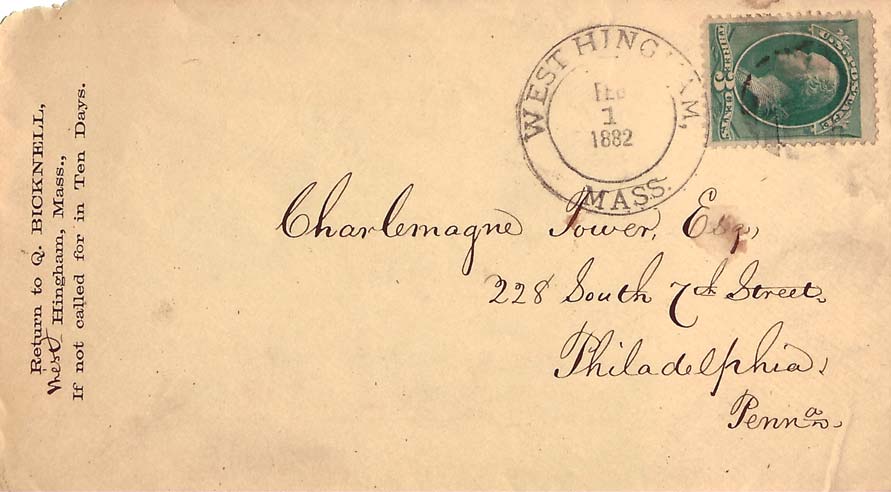 Return to Q. BICKNELL,
West Hingham, Mass.,
If not called for in Ten Days.
WEST HINGHAM,
FEB
1
1882
MASS.
U.S. POSTAGE
3
Charlemagne Tower, Esq,
228 South 7th Street,
Philadelphia,
Penna.